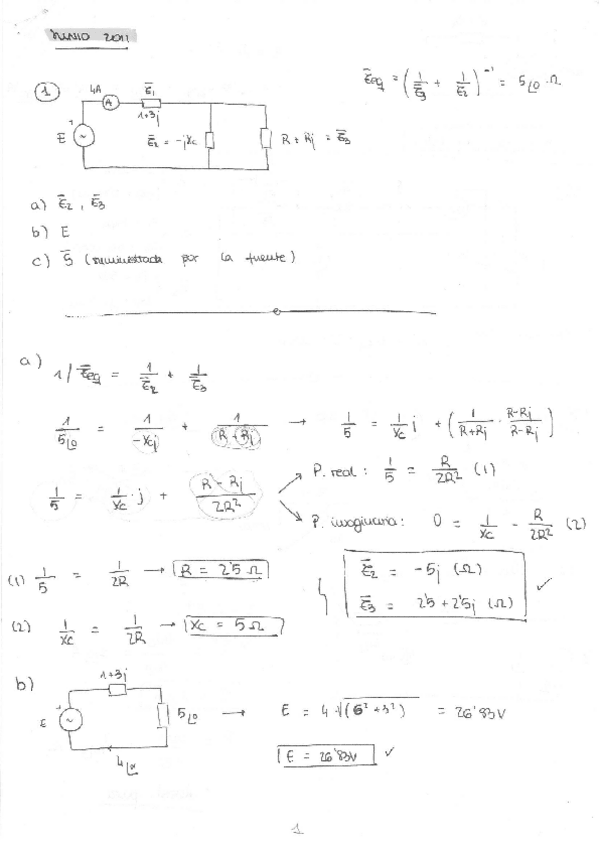 JUNIO 2011
Z̄eq = (1/Z̄3 + 1/Z̄2)⁻¹ = 5∟0 Ω
1
4A
A
Z̄1
1+3j
E
+
~
Z̄2 = -jXc
R + Rj = Z̄3
a) Z̄2, Z̄3
b) E
c) S̄ (suministrada por la fuente)
a) 1/Z̄eq = 1/Z̄2 + 1/Z̄3
1/5∟0 = 1/-Xcj + 1/(R+Rj) → 1/5 = 1/Xc j + (1/R+Rj · R-Rj/R-Rj)
1/5 = 1/Xc · j + R-Rj/2R²
P. real: 1/5 = R/2R² (1)
P. imaginaria: 0 = 1/Xc - R/2R² (2)
(1) 1/5 = 1/2R → R = 2'5 Ω
(2) 1/Xc = 1/2R → Xc = 5 Ω
Z̄2 = -5j (Ω)
Z̄3 = 2'5 + 2'5j (Ω) ✓
b)
1+3j
E
+
~
5∟0
4∟α
→ E = 4·√(6² + 3²) = 26'83V
E = 26'83V ✓
1